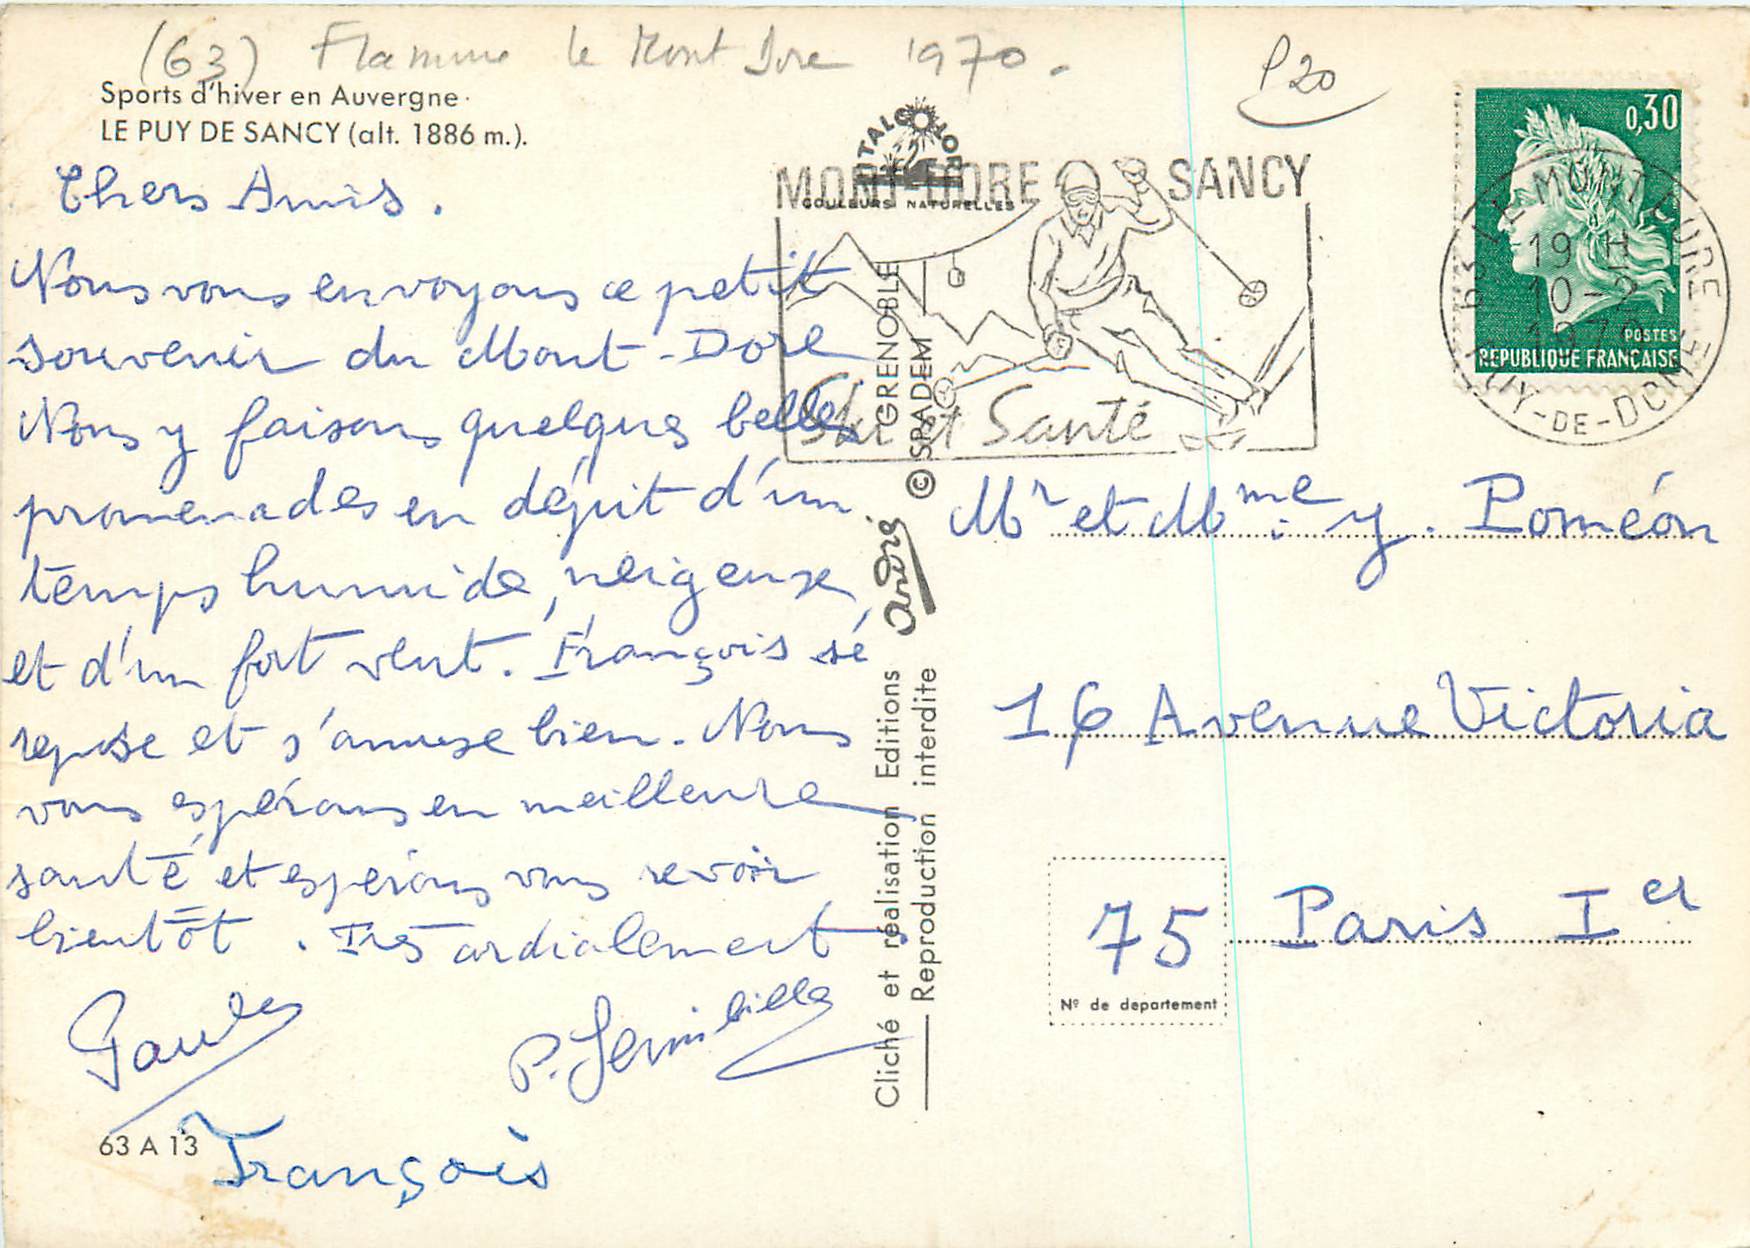 (63) Flamme le Mont Dore 1970.
P20
Sports d'hiver en Auvergne
LE PUY DE SANCY (alt. 1886 m.).
Chers Amis.
Nous vous envoyons ce petit
souvenir du Mont-Dore
Nous y faisons quelques belles
promenades en dépit d'un
temps humide, neigeux,
et d'un fort vent. François se
repose et s'amuse bien. Nous
vous espérons en meilleure
santé et espérons vous revoir
bientôt. Très cordialement
P.
François
63 A 13
COULEURS NATURELLES
MONT-DORE SANCY
Ski et Santé
0,30
POSTES
REPUBLIQUE FRANÇAISE
63 LE MONT DORE
19 H
10-2
1970
PUY-DE-DOME
Cliché et réalisation Editions André GRENOBLE
Reproduction interdite © SPADEM
Mr et Mme Y. Poméon
16 Avenue Victoria
75 Paris Ier
Nº de departement